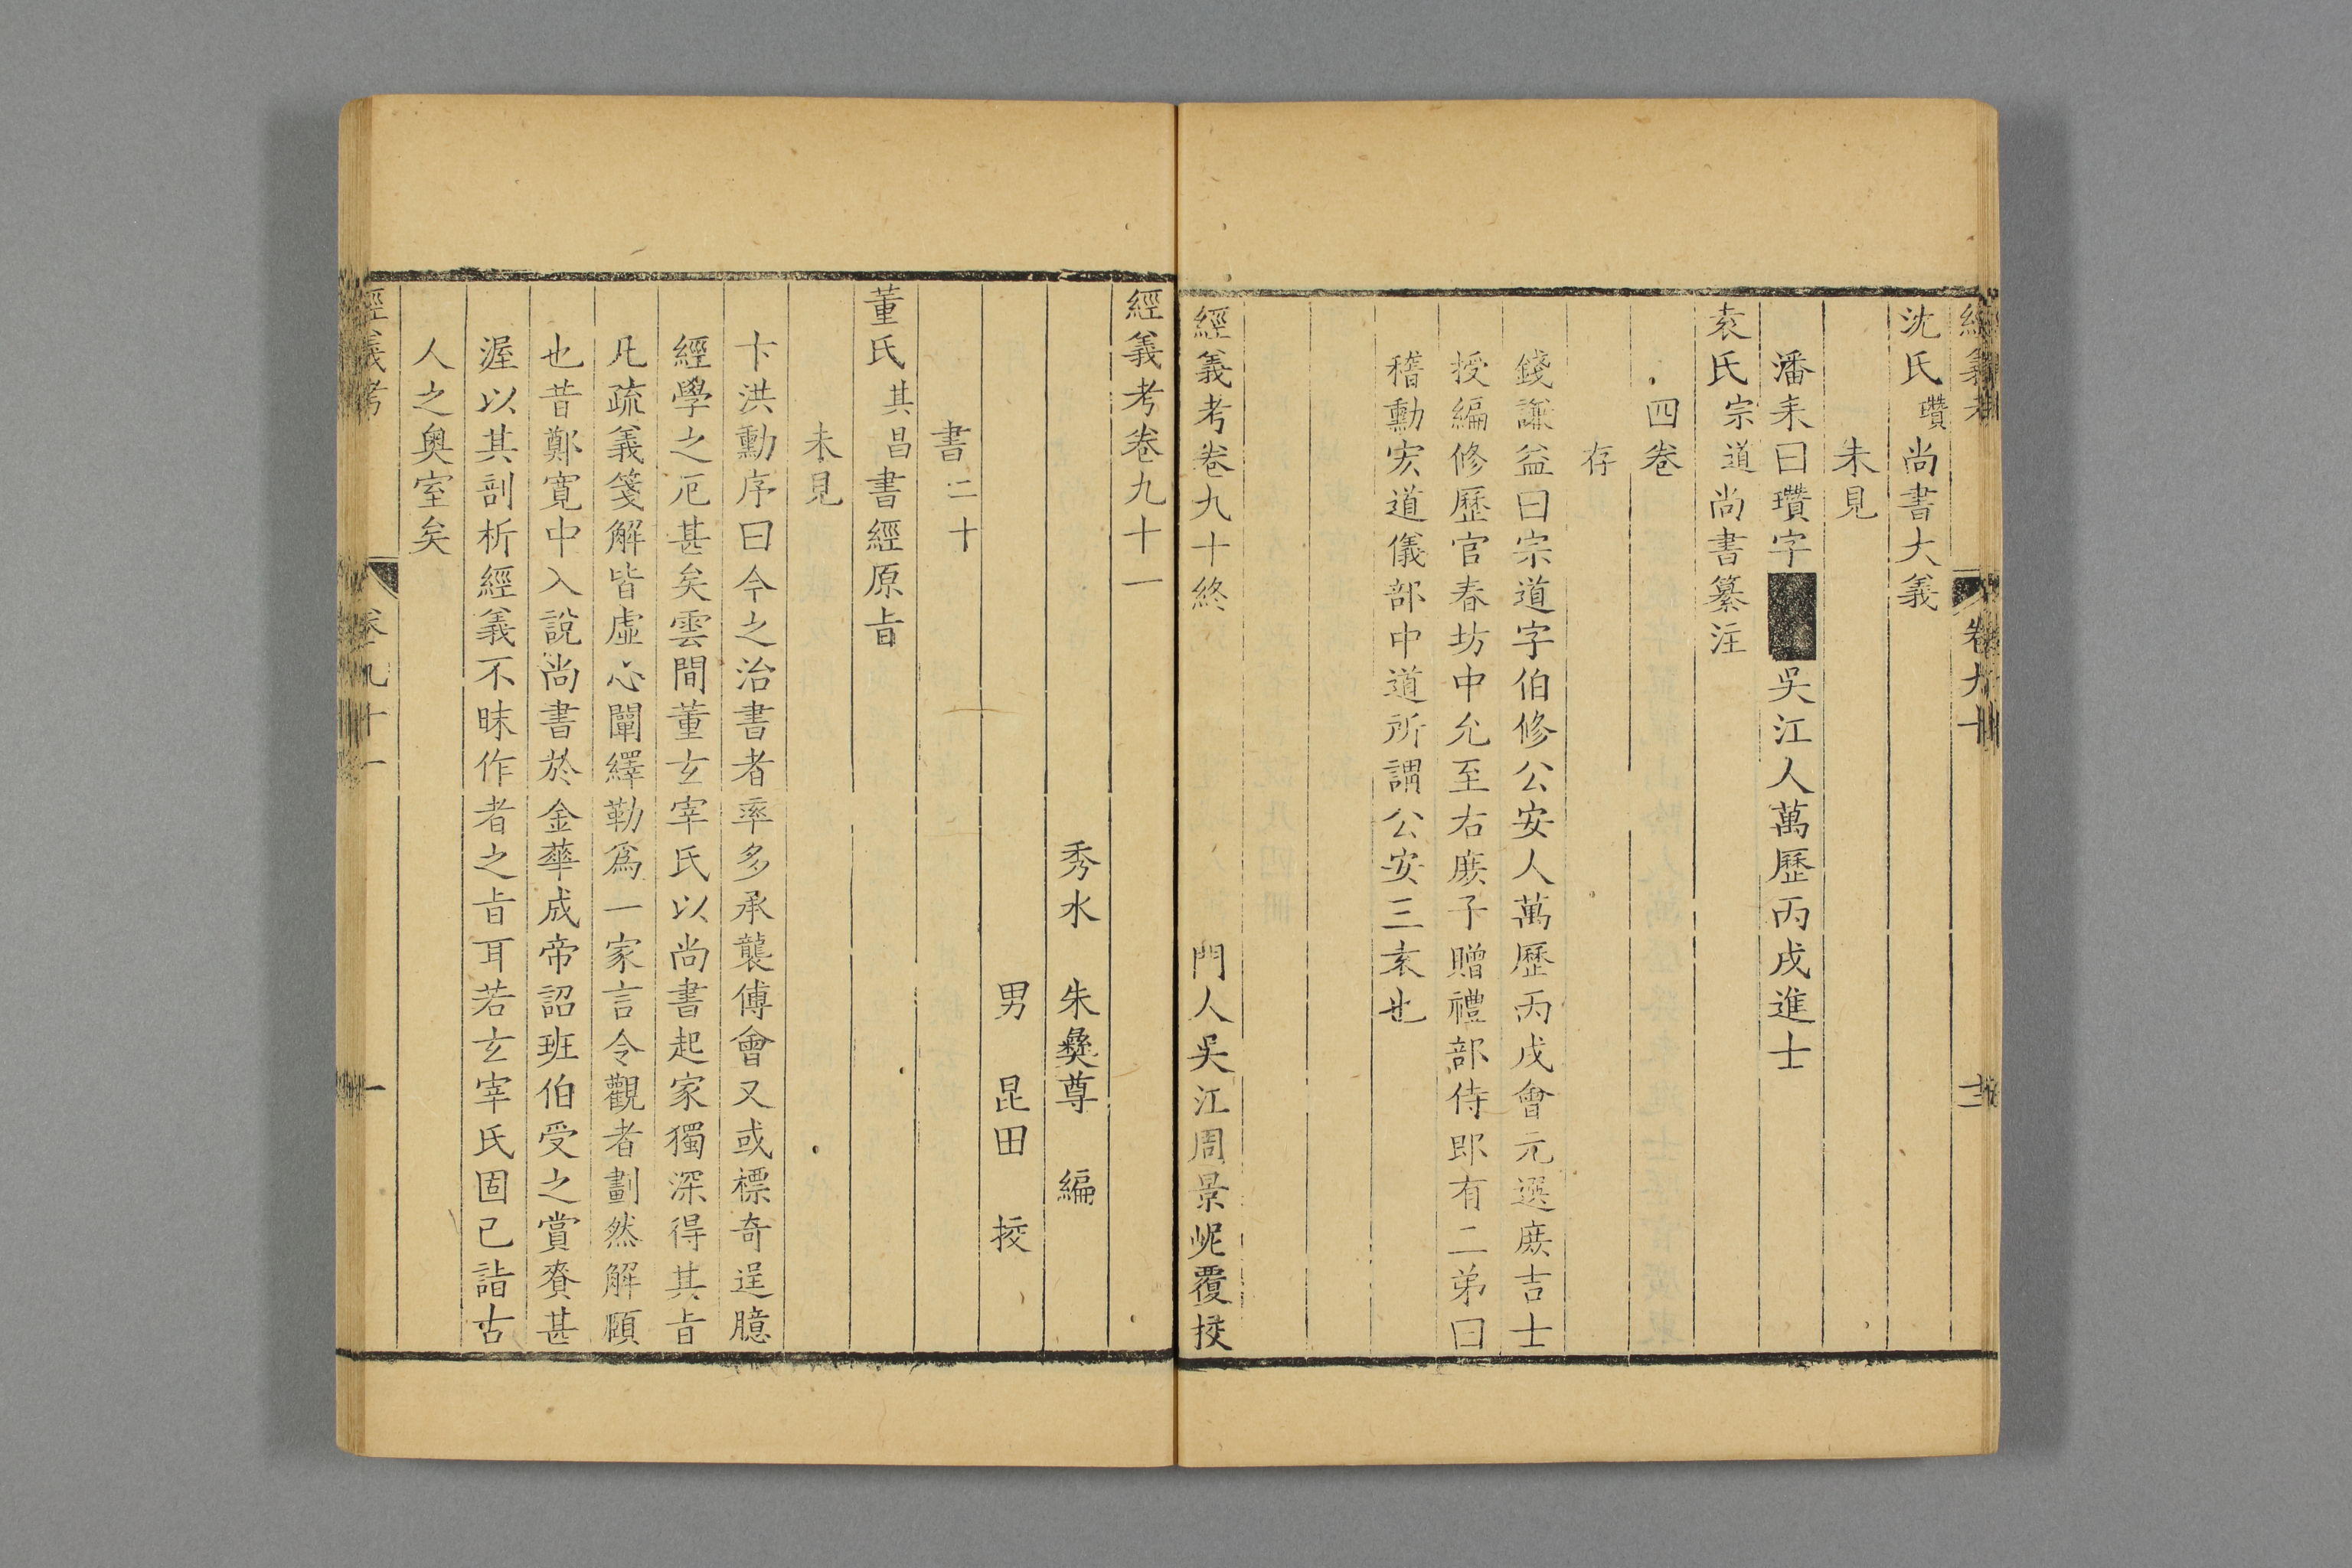 經義考 卷九十
沈氏瓚尚書大義
未見
潘耒曰瓚字 吳江人萬歷丙戌進士
袁氏宗道尚書纂注
四卷
存
錢謙益曰宗道字伯修公安人萬歷丙戌會元選庶吉士
授編修歷官春坊中允至右庶子贈禮部侍郎有二弟曰
稽勳宏道儀部中道所謂公安三袁也
經義考卷九十終 門人吳江周景岷覆挍
經義考卷九十一
秀水 朱彝尊 編
男 昆田 挍
書二十
董氏其昌書經原旨
未見
卞洪勳序曰今之治書者率多承襲傅會又或標奇逞臆
經學之戹甚矣雲間董玄宰氏以尚書起家獨深得其旨
凡疏義箋解皆虛心闡繹勒爲一家言令觀者劃然解頤
也昔鄭寬中入說尚書於金華成帝詔班伯受之賞賚甚
渥以其剖析經義不昧作者之旨耳若玄宰氏固已詣古
人之奧室矣
經義考 卷九十一 一